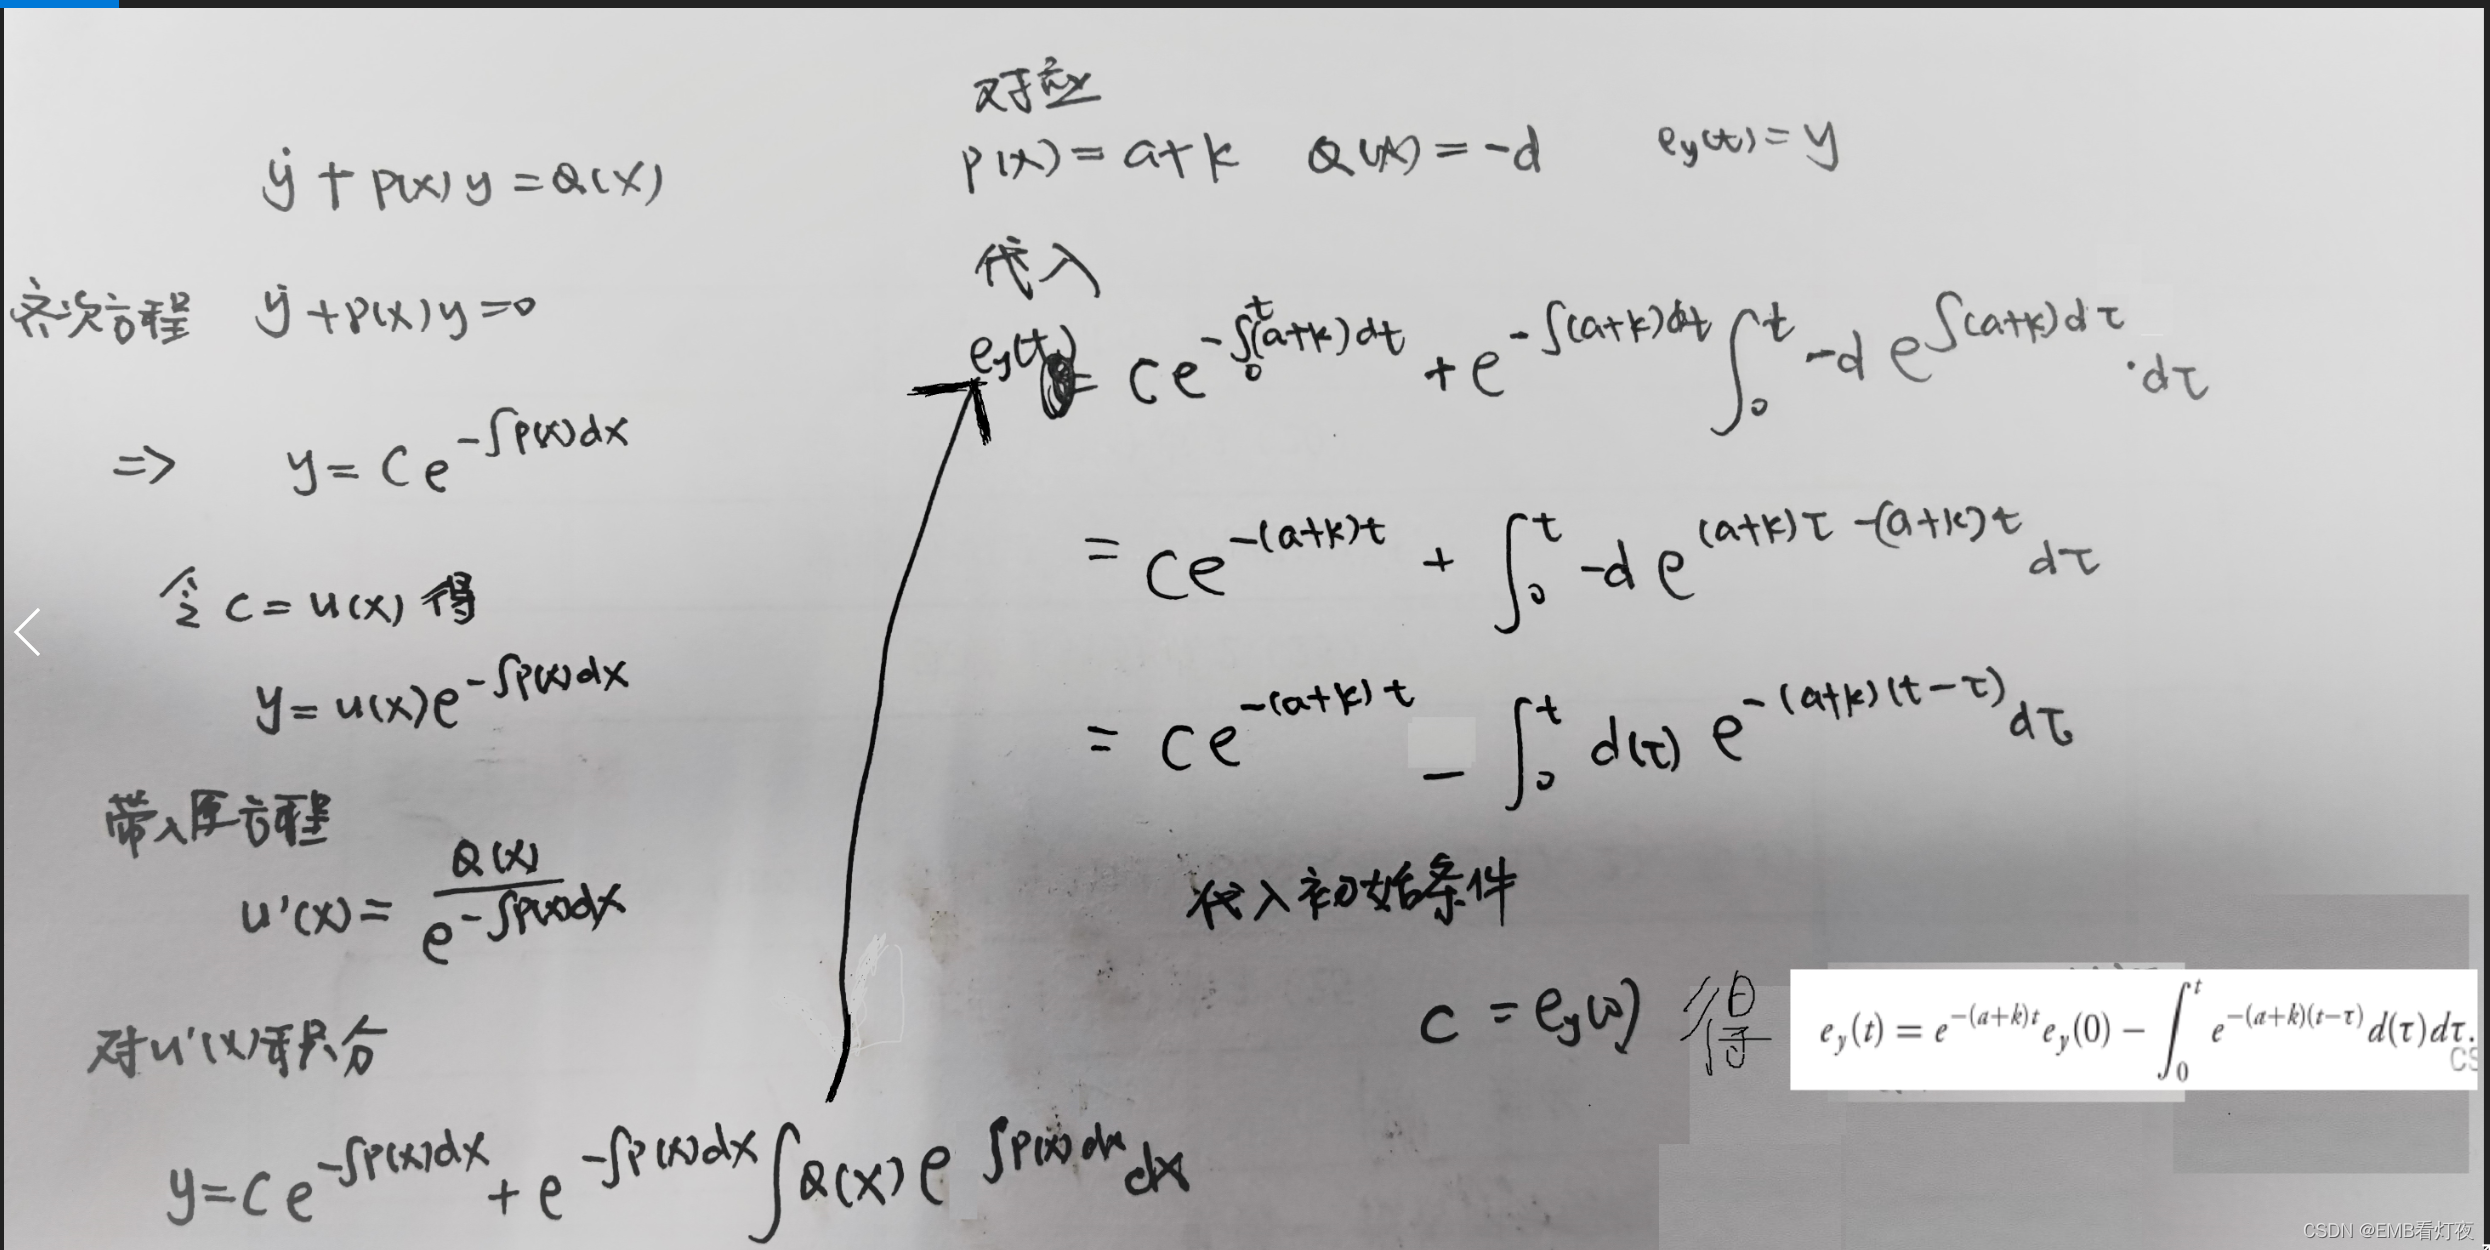 ẏ + p(x) y = Q(x)
齐次方程 ẏ + p(x) y = 0
=> y = C e^{-∫p(x)dx}
令 C = u(x) 得
y = u(x) e^{-∫p(x)dx}
带入原方程
u'(x) = Q(x) / e^{-∫p(x)dx}
对u'(x)积分
y = C e^{-∫p(x)dx} + e^{-∫p(x)dx} ∫Q(x) e^{∫p(x)dx} dx
对应
p(x) = a+k Q(x) = -d e_y(t) = y
代入
e_y(t) = C e^{-∫_0^t (a+k)dt} + e^{-∫(a+k)dt} ∫_0^t -d e^{∫(a+k)dτ} · dτ
= C e^{-(a+k)t} + ∫_0^t -d e^{(a+k)τ -(a+k)t} dτ
= C e^{-(a+k)t} - ∫_0^t d(τ) e^{-(a+k)(t-τ)} dτ
代入初始条件
C = e_y(0) 得 e_y(t) = e^{-(a+k)t} e_y(0) − ∫_0^t e^{-(a+k)(t-τ)} d(τ)dτ.
CS
CSDN @EMB看灯夜